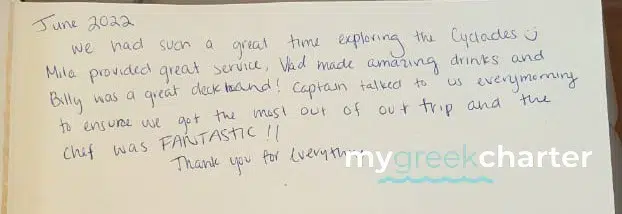 June 2022
We had such a great time exploring the Cyclades
Mila provided great service, Vlad made amazing drinks and
Billy was a great deckhand! Captain talked to us everymorning
to ensure we got the most out of out trip and the
chef was FANTASTIC!!
Thank you for
mygreekcharter